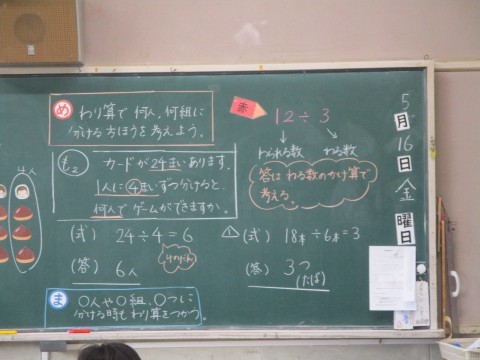 4人
め わり算で何人、何組に
分ける方ほうを考えよう。
もん2
カードが24まいあります。
1人に④まいずつ分けると、
何人でゲームができますか。
(式) 24÷4=6
4のだん
(答) 6人
ま ○人や○組、○つに
分ける時もわり算をつかう。
赤 12÷3
わられる数 わる数
答は わる数のかけ算で
考える。
1 (式) 18本÷6本=3
(答) 3つ
(たば)
5
月
16
日
金
曜日